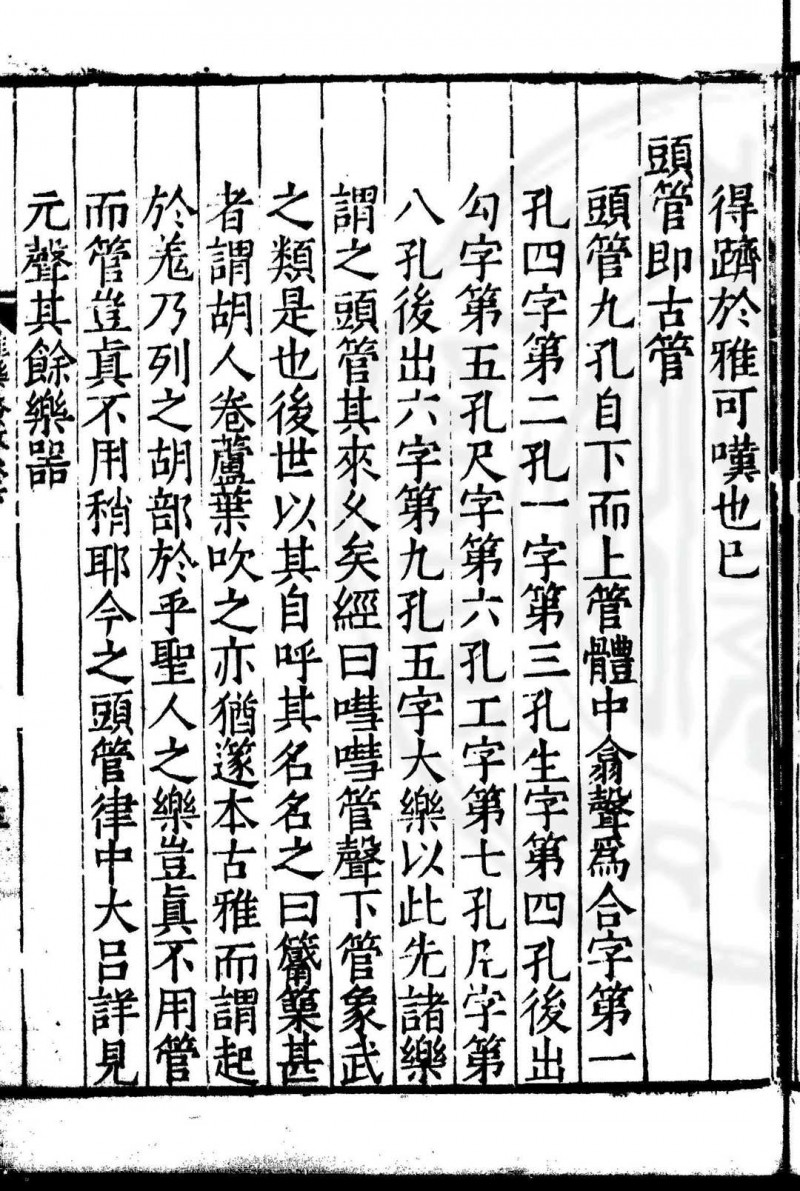 得躋於雅可嘆也已
頭管即古管
頭管九孔自下而上管體中翕聲爲合字第一
孔四字第二孔一字第三孔生字第四孔後出
勾字第五孔尺字第六孔工字第七孔凡字第
八孔後出六字第九孔五字大樂以此先諸樂
謂之頭管其來乆矣經曰嘒嘒管聲下管象武
之類是也後世以其自呼其名名之曰觱篥甚
者謂胡人卷蘆葉吹之亦猶篴本古雅而謂起
於羗乃列之胡部於乎聖人之樂豈眞不用管
而管豈眞不用稍耶今之頭管律中大呂詳見
元聲其餘樂器